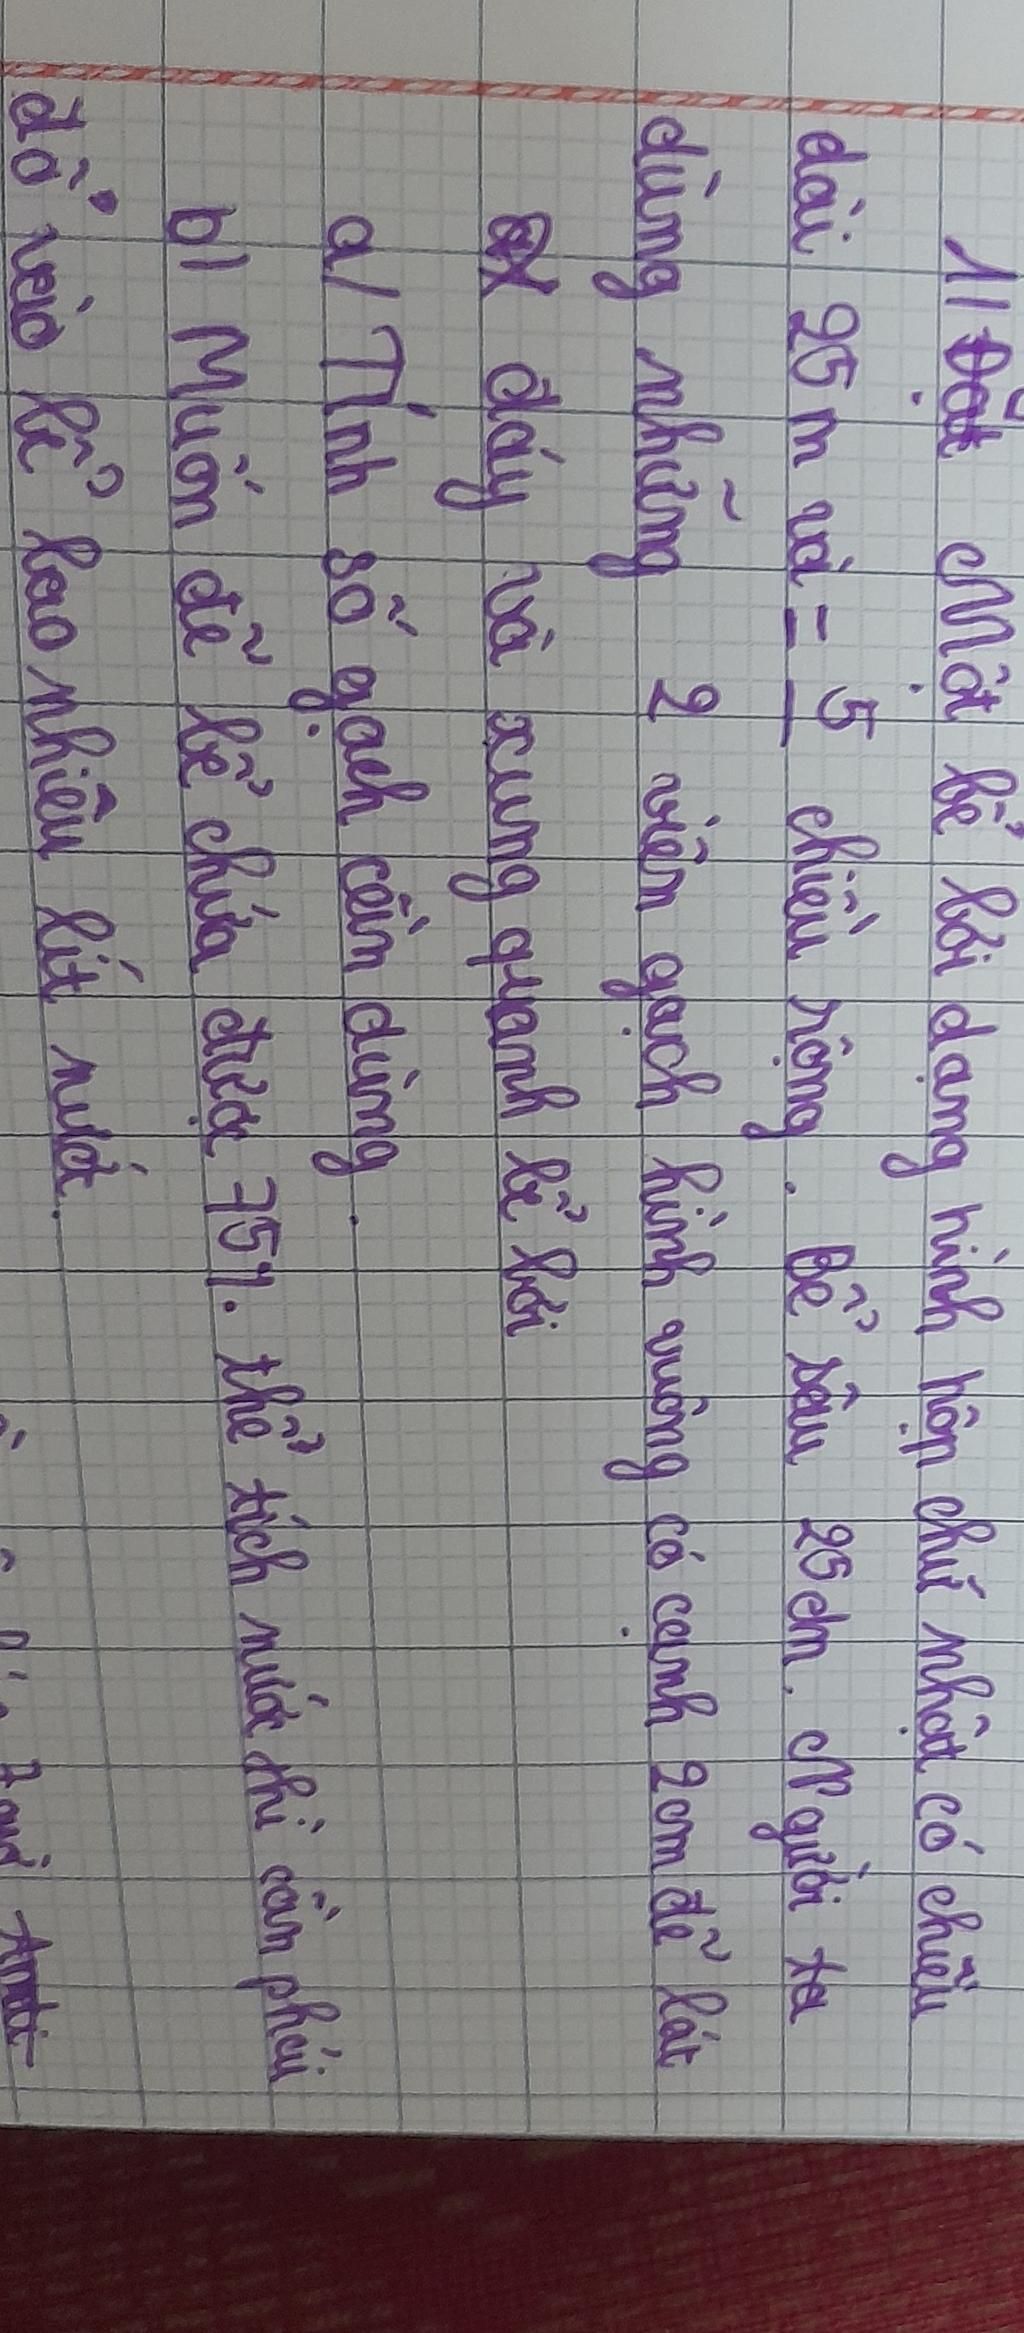 1) Một bể bơi dạng hình hộp chữ nhật có chiều
dài 25 m và = 5 chiều rộng. Bể sâu 25 dm. Người ta
dùng những 2 viên gạch hình vuông có cạnh 2 cm để lát
đáy và xung quanh bể bơi
a/ Tính số gạch cần dùng.
b) Muốn để bể chứa được 75%. thể tích nước thì cần phải
đổ vào bể bao nhiêu lít nước.